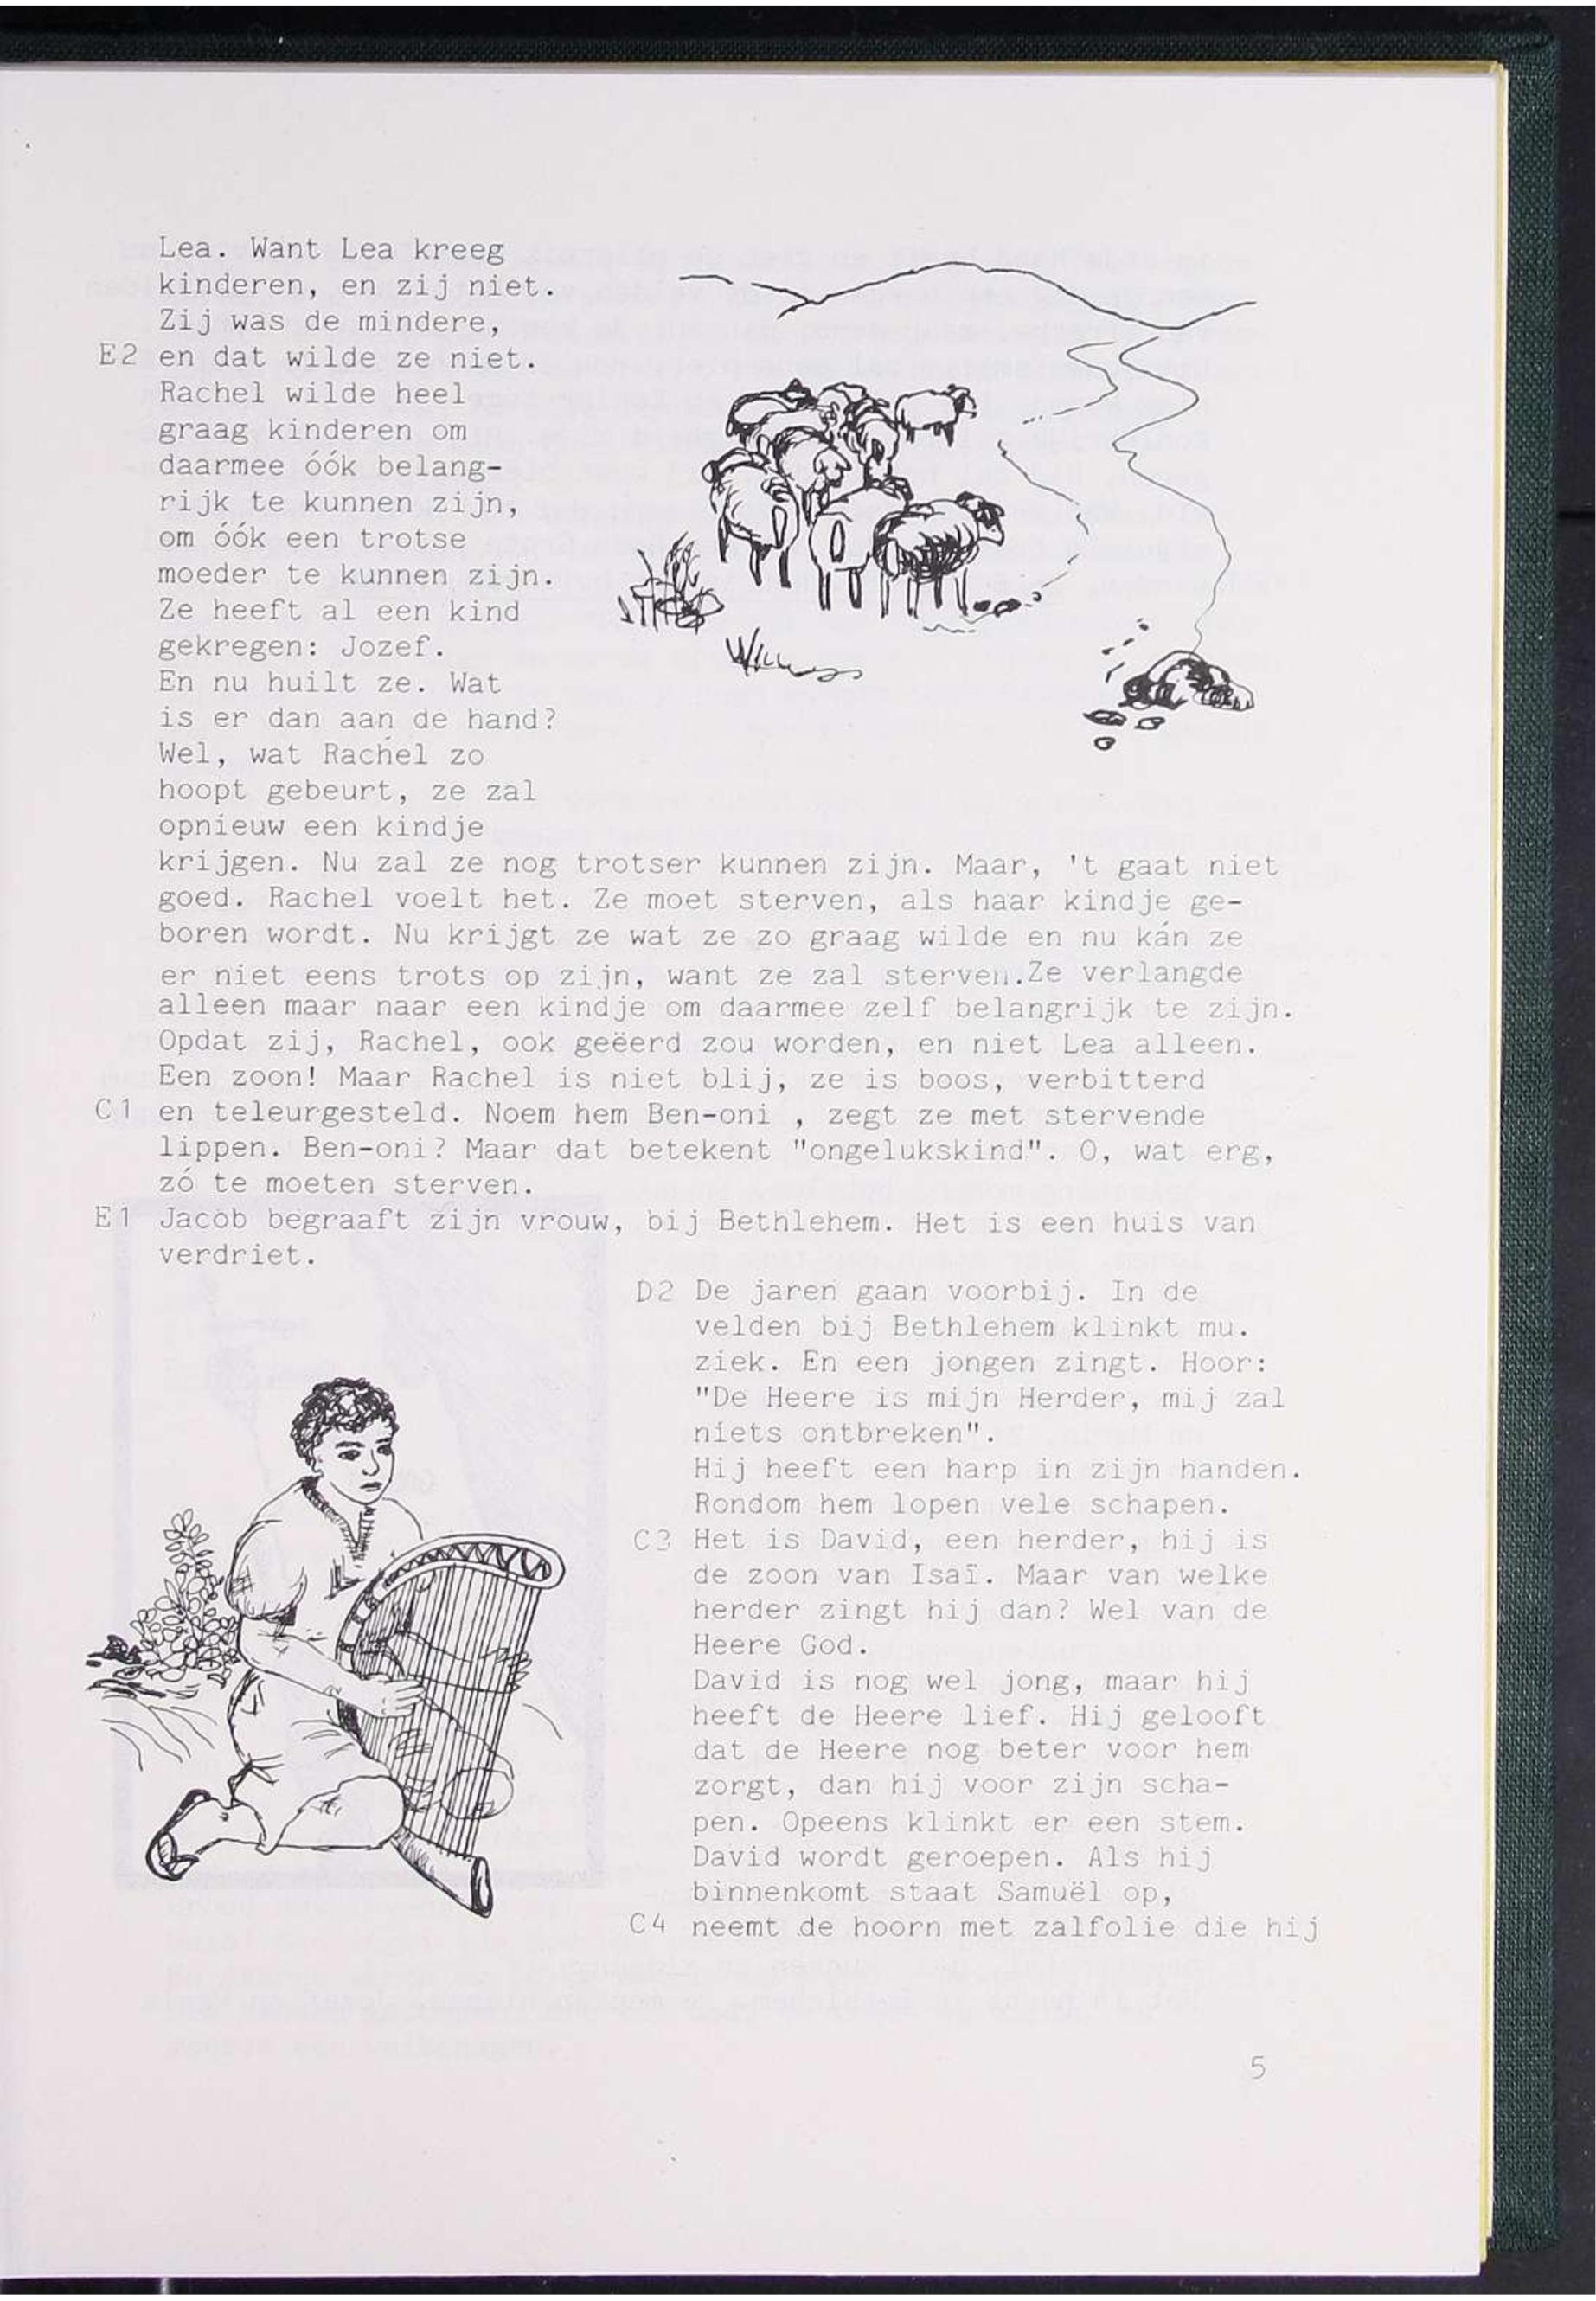 Lea. Want Lea kreeg
kinderen, en zij niet.
Zij was de mindere,
E2 en dat wilde ze niet.
Rachel wilde heel
graag kinderen om
daarmee óók belang-
rijk te kunnen zijn,
om óók een trotse
moeder te kunnen zijn.
Ze heeft al een kind
gekregen: Jozef.
En nu huilt ze. Wat
is er dan aan de hand?
Wel, wat Rachel zo
hoopt gebeurt, ze zal
opnieuw een kindje
krijgen. Nu zal ze nog trotser kunnen zijn. Maar, 't gaat niet
goed. Rachel voelt het. Ze moet sterven, als haar kindje ge-
boren wordt. Nu krijgt ze wat ze zo graag wilde en nu kán ze
er niet eens trots op zijn, want ze zal sterven.Ze verlangde
alleen maar naar een kindje om daarmee zelf belangrijk te zijn.
Opdat zij, Rachel, ook geëerd zou worden, en niet Lea alleen.
Een zoon! Maar Rachel is niet blij, ze is boos, verbitterd
C1 en teleurgesteld. Noem hem Ben-oni , zegt ze met stervende
lippen. Ben-oni? Maar dat betekent "ongelukskind". O, wat erg,
zó te moeten sterven.
E1 Jacob begraaft zijn vrouw, bij Bethlehem. Het is een huis van
verdriet.
D2 De jaren gaan voorbij. In de
velden bij Bethlehem klinkt mu.
ziek. En een jongen zingt. Hoor:
"De Heere is mijn Herder, mij zal
niets ontbreken".
Hij heeft een harp in zijn handen.
Rondom hem lopen vele schapen.
C3 Het is David, een herder, hij is
de zoon van Isaï. Maar van welke
herder zingt hij dan? Wel van de
Heere God.
David is nog wel jong, maar hij
heeft de Heere lief. Hij gelooft
dat de Heere nog beter voor hem
zorgt, dan hij voor zijn scha-
pen. Opeens klinkt er een stem.
David wordt geroepen. Als hij
binnenkomt staat Samuël op,
C4 neemt de hoorn met zalfolie die hij
5